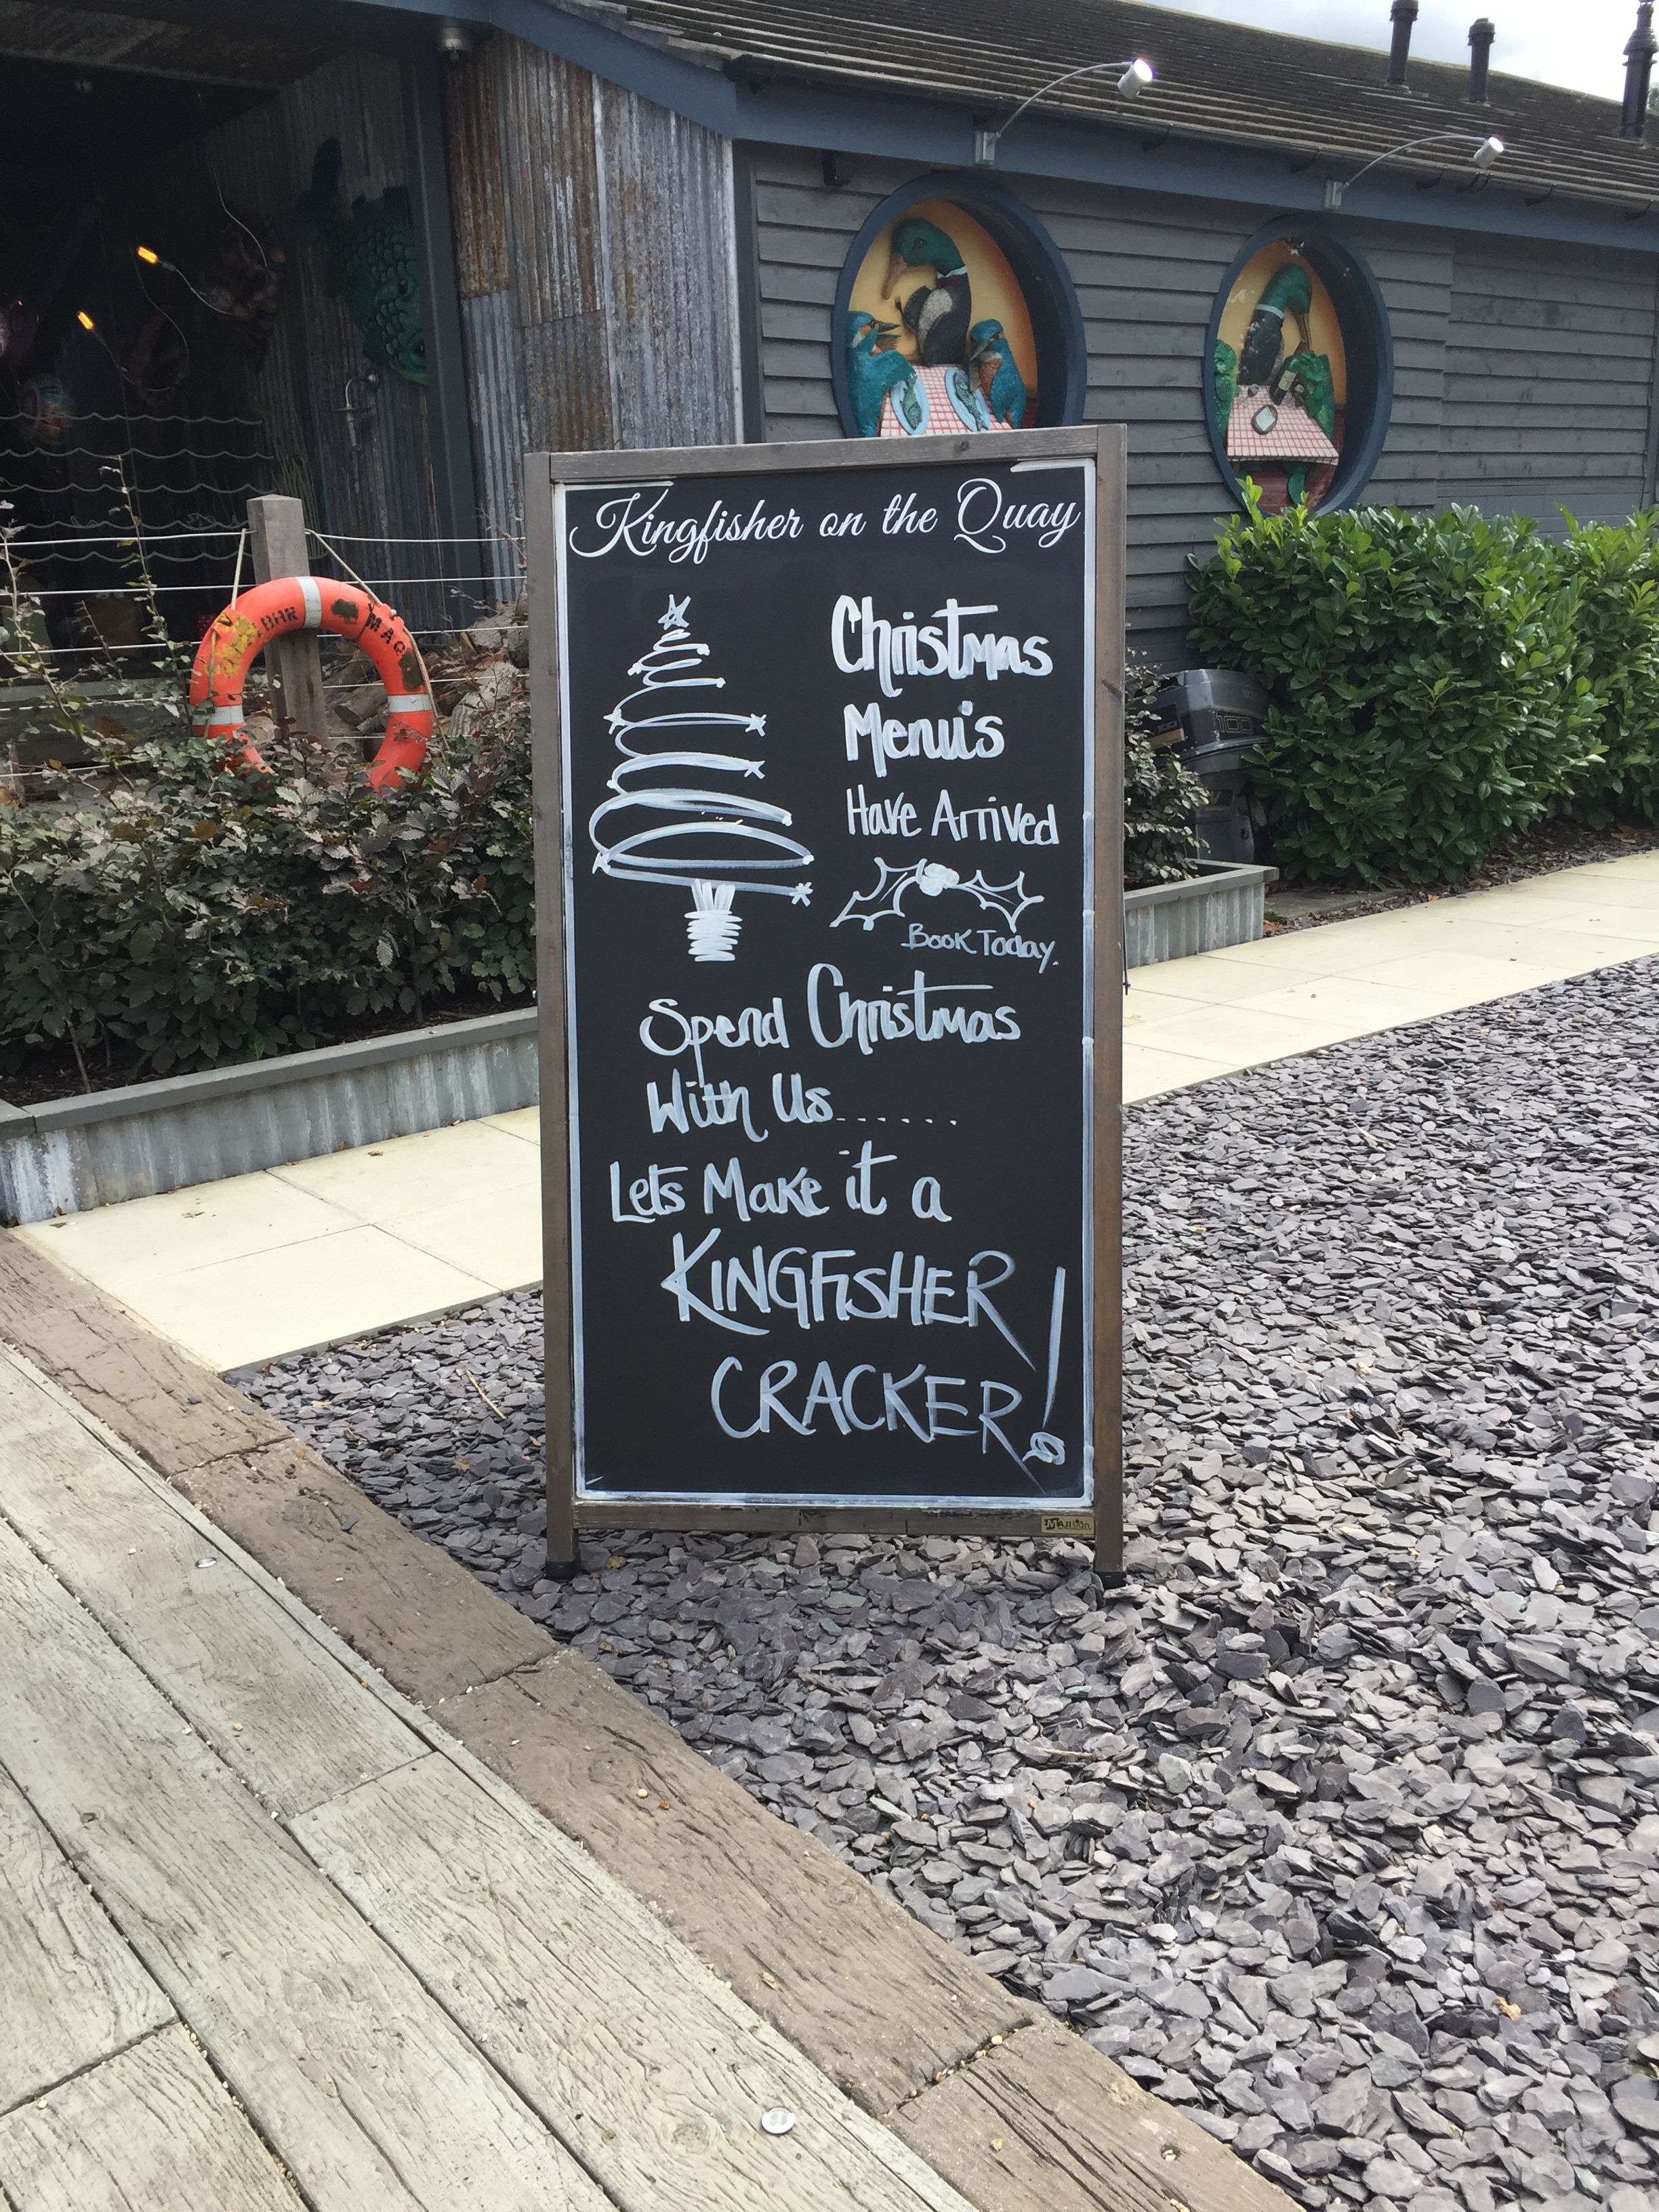 Kingfisher on the Quay
Christmas
Menu's
Have Arrived
Book Today.
Spend Christmas
With Us......
Lets Make it a
KINGFISHER
CRACKER!